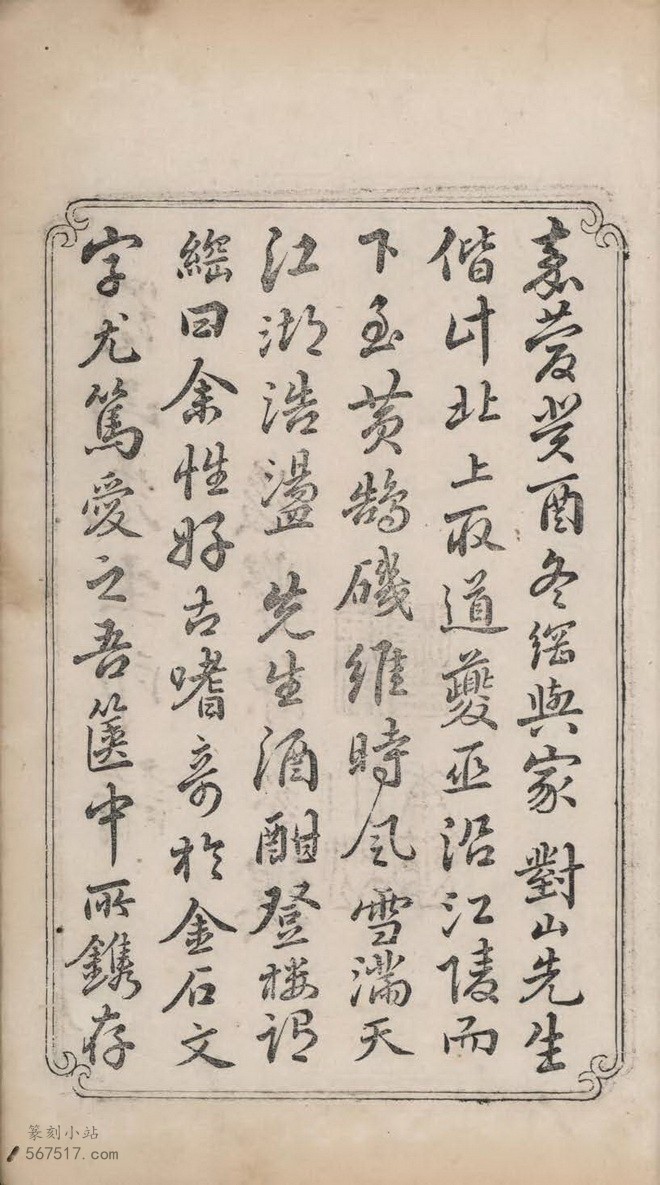 嘉慶癸酉冬綱與家對山先生
偕計北上取道夔巫沿江陵而
下至黃鵠磯維時風雪滿天
江湖浩盪先生酒酣登樓謂
綱曰余性好古嗜奇於金石文
字尤篤愛之吾篋中所鐫存
篆刻小站
567517.com